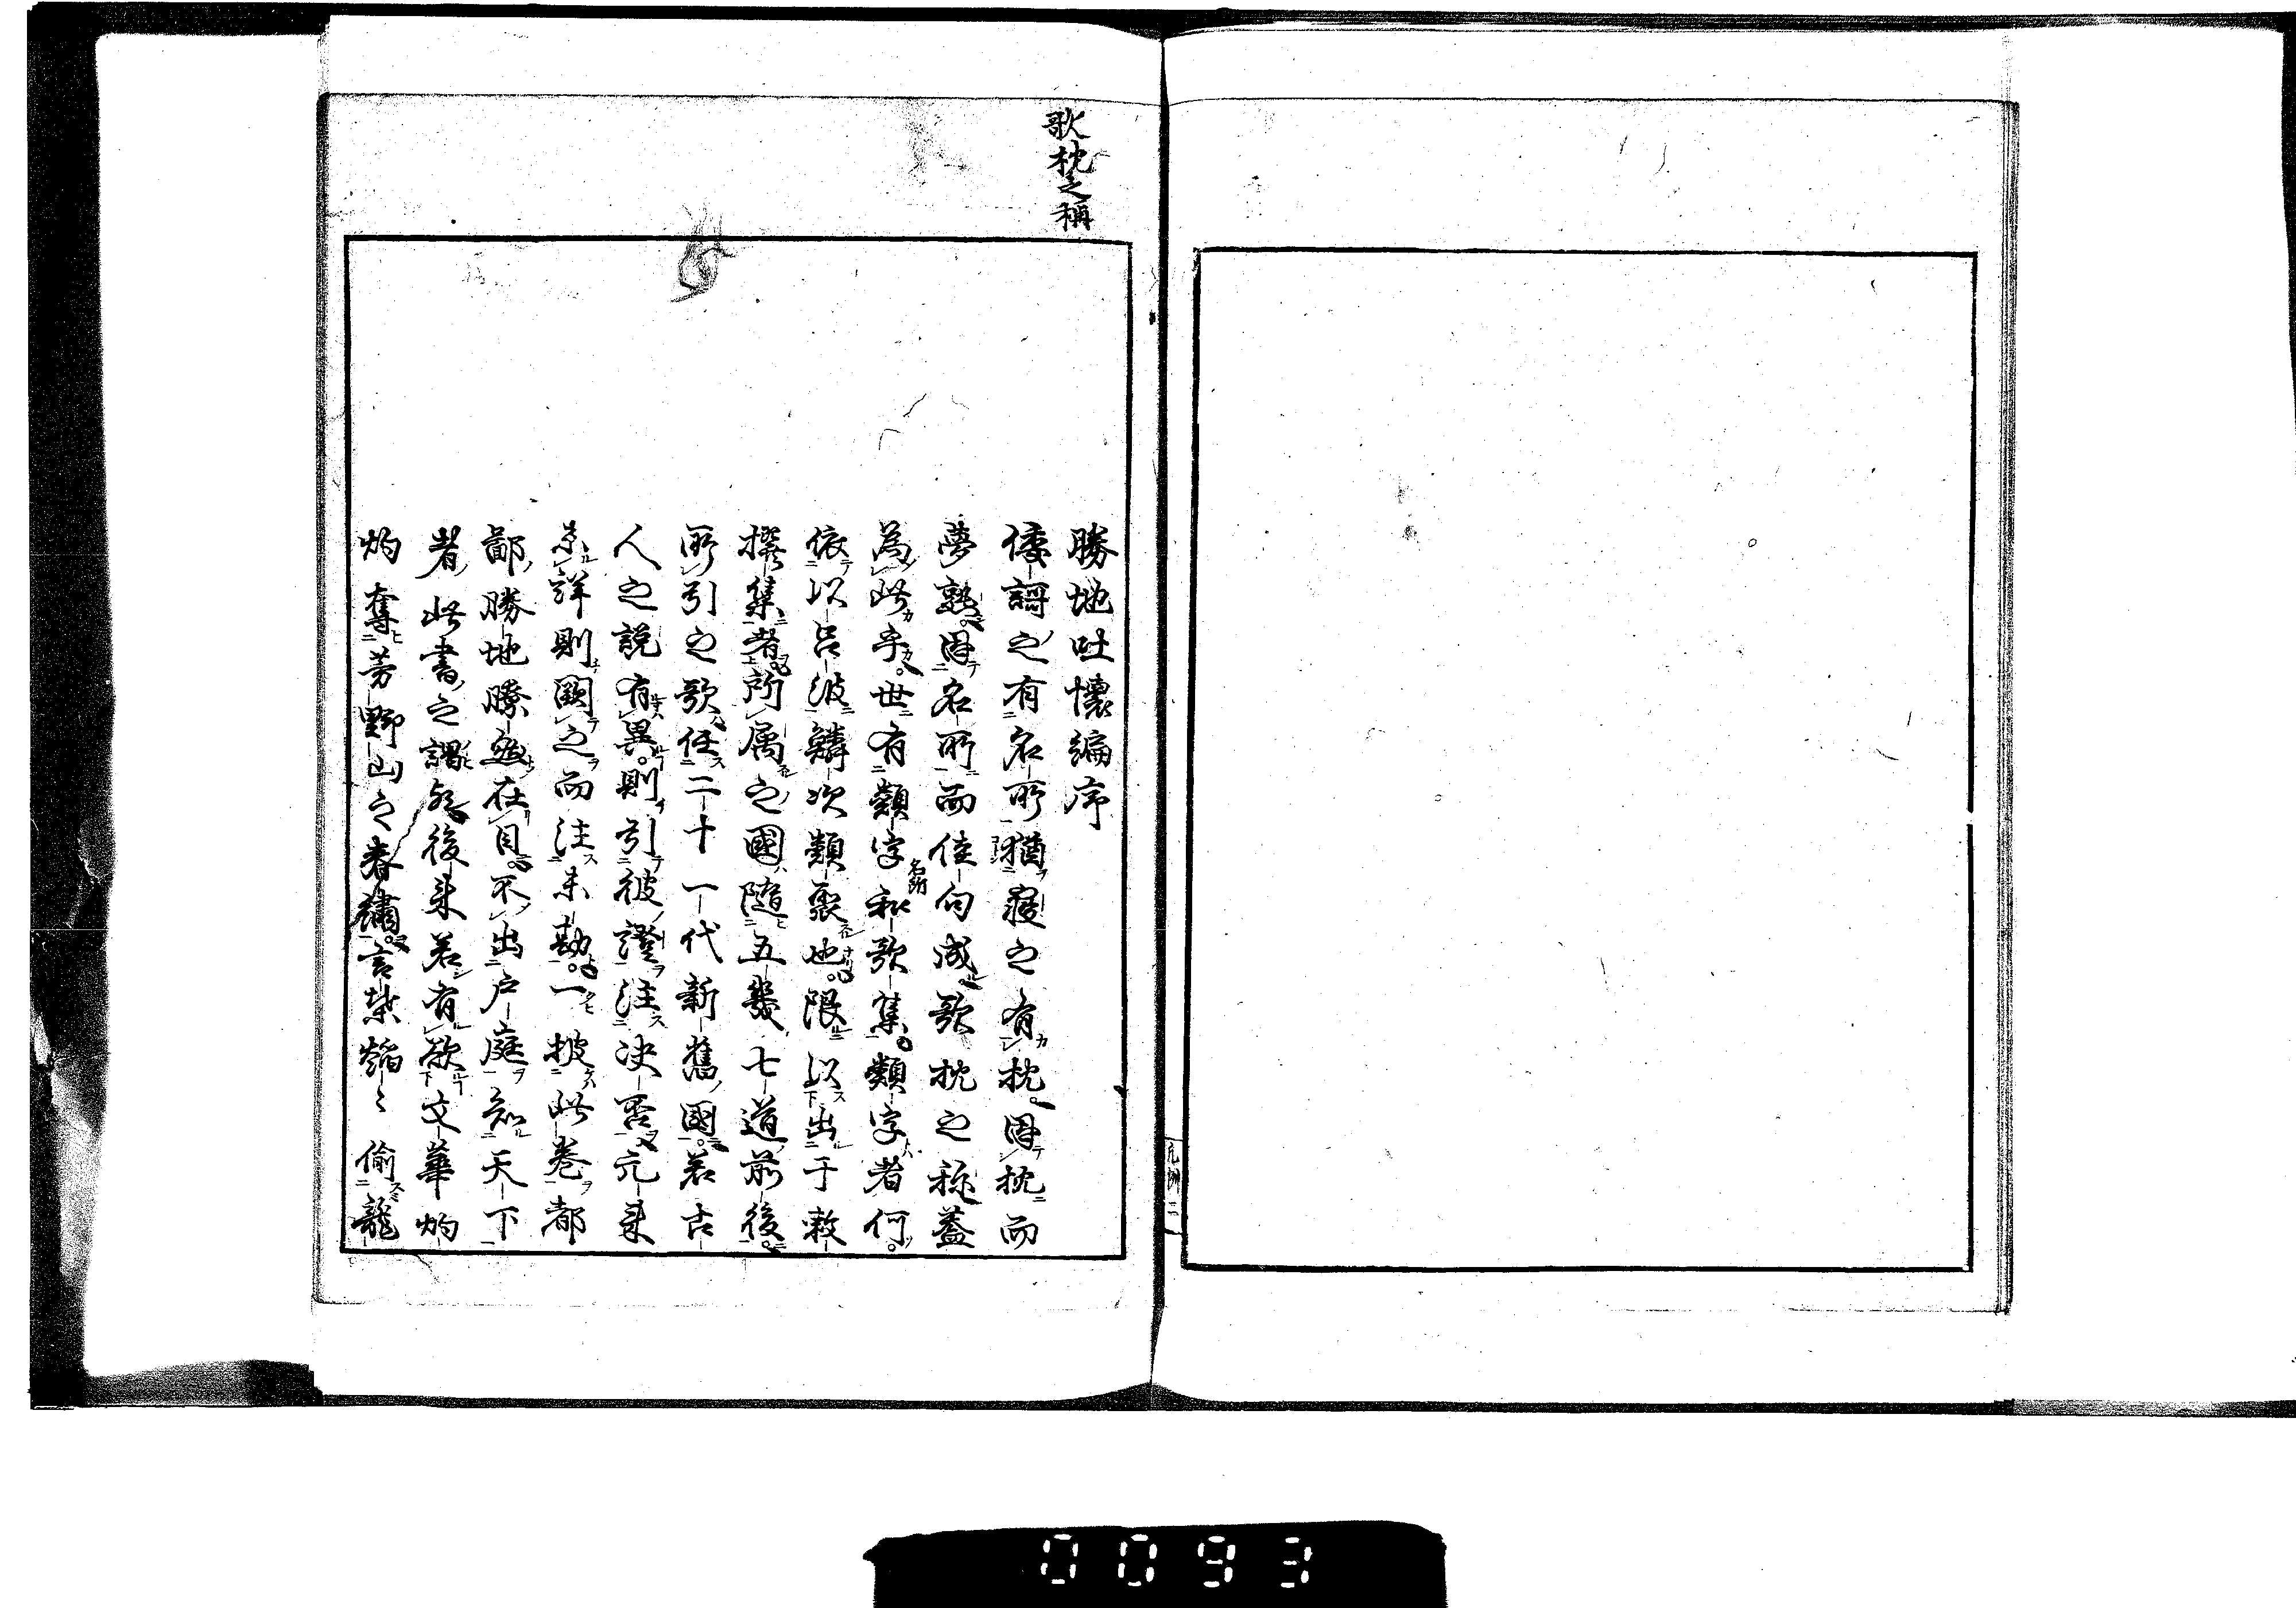 歌枕之稱
勝地吐懷編序
倭謌之有名所猶寢之有枕因枕而
夢熟因名所而佳句成歌枕之称蓋
為此乎世有類字名所和歌集類字者何
依以呂波鱗次類聚也限以出于敕
撰集者所属之國随五畿七道前後
所引之歌任二十一代新舊國若古
人之説有異則引彼證注决否元来
未詳則闕之而注未勘一披此巻都
鄙勝地瞭在目不出戸庭知天下
者此書之謂後来若有欲文華灼
灼奪芳野山之春繍言葉熖〻偷龍
0093